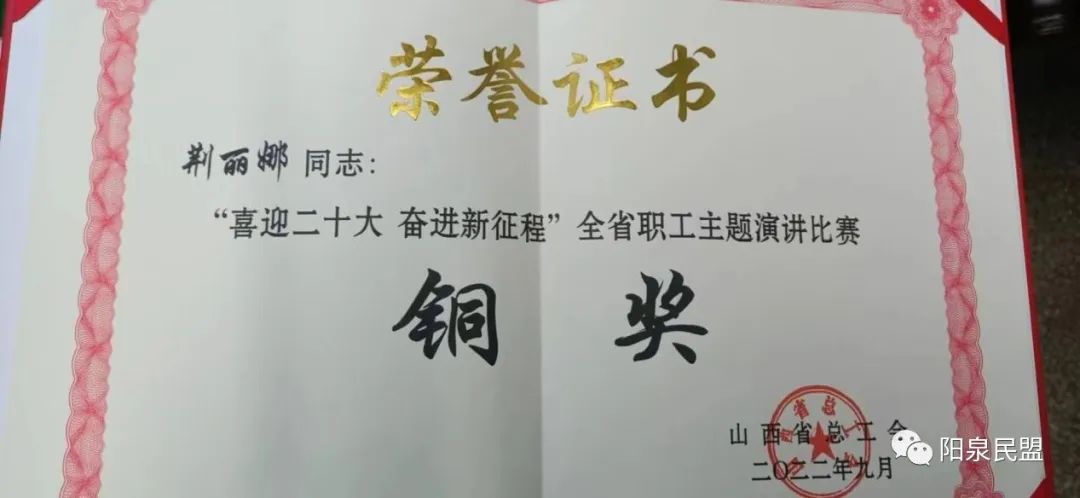 荣誉证书
荆丽娜 同志：
“喜迎二十大 奋进新征程”全省职工主题演讲比赛
铜 奖
山西省总工会
二〇二二年九月
阳泉民盟